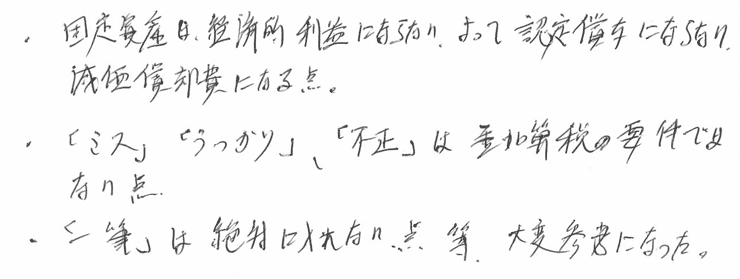 ・固定資産は、経済的利益にならない。よって認定償与にならない。
減価償却費になる点。
・「ミス」「うっかり」、「不正」は重加算税の要件では
ない点。
・「一筆」は絶対に入れない点等、大変参考になった。